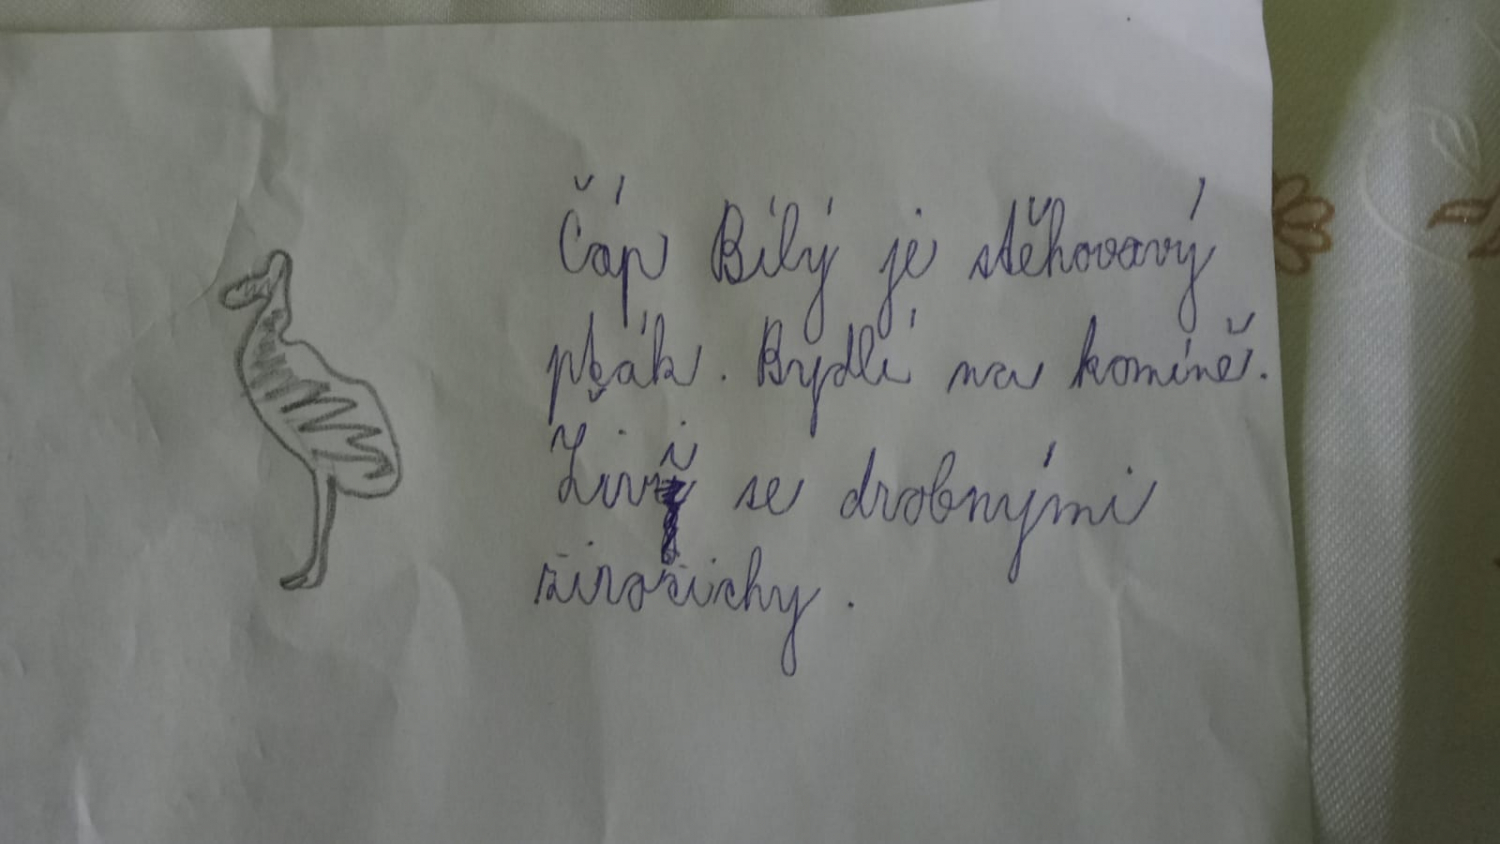 Čáp Bílý je stěhovavý
pták. Bydlí na komíně.
Živí se drobnými
živočichy.